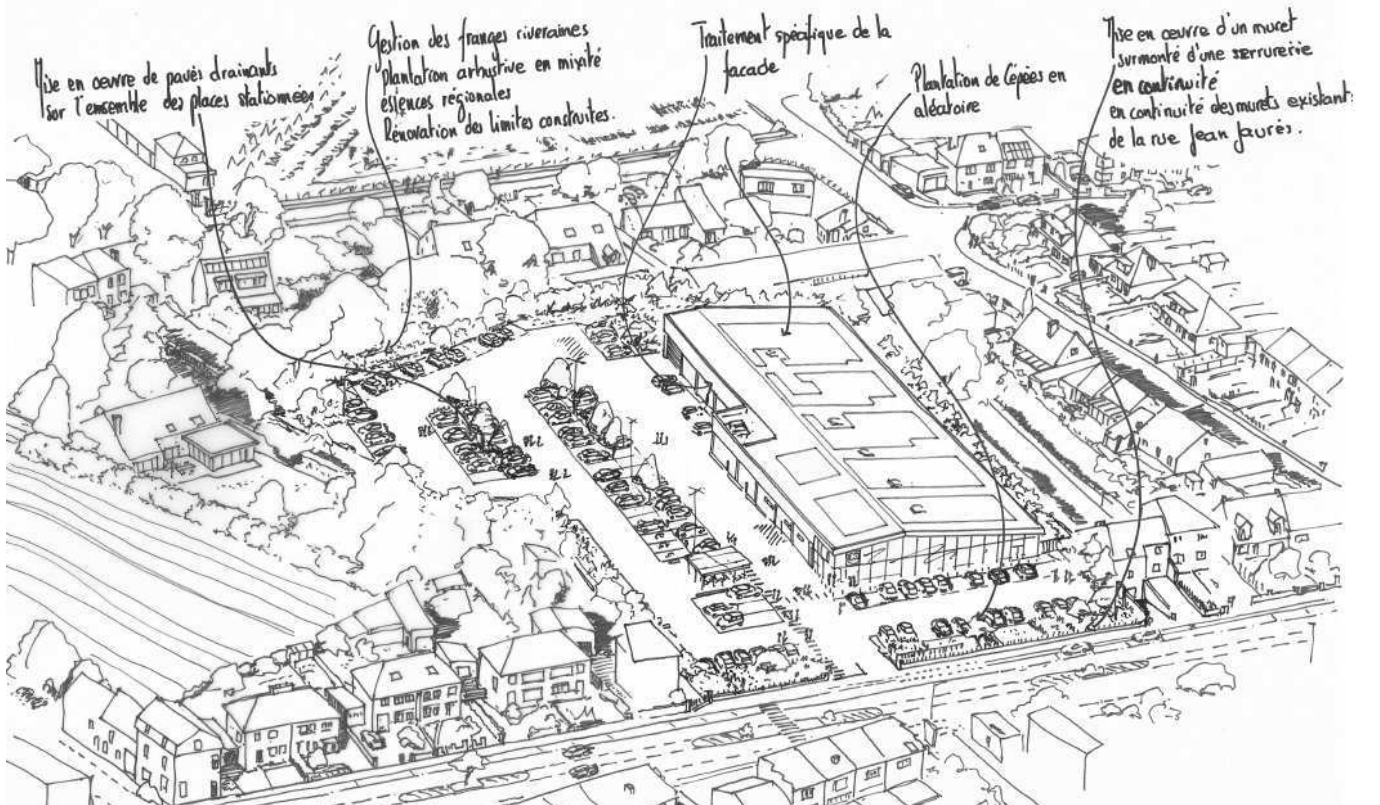 Mise en oeuvre de pavés drainants
sur l'ensemble des places stationnées
Gestion des franges riveraines
plantation arbustive en mixité
essences régionales
Rénovation des limites construites.
Traitement spécifique de la
facade
Plantation de Cépées en
aléatoire
Mise en oeuvre d'un muret
surmonté d'une serrurerie
en continuité
en continuité des murets existant
de la rue Jean Jaurès.